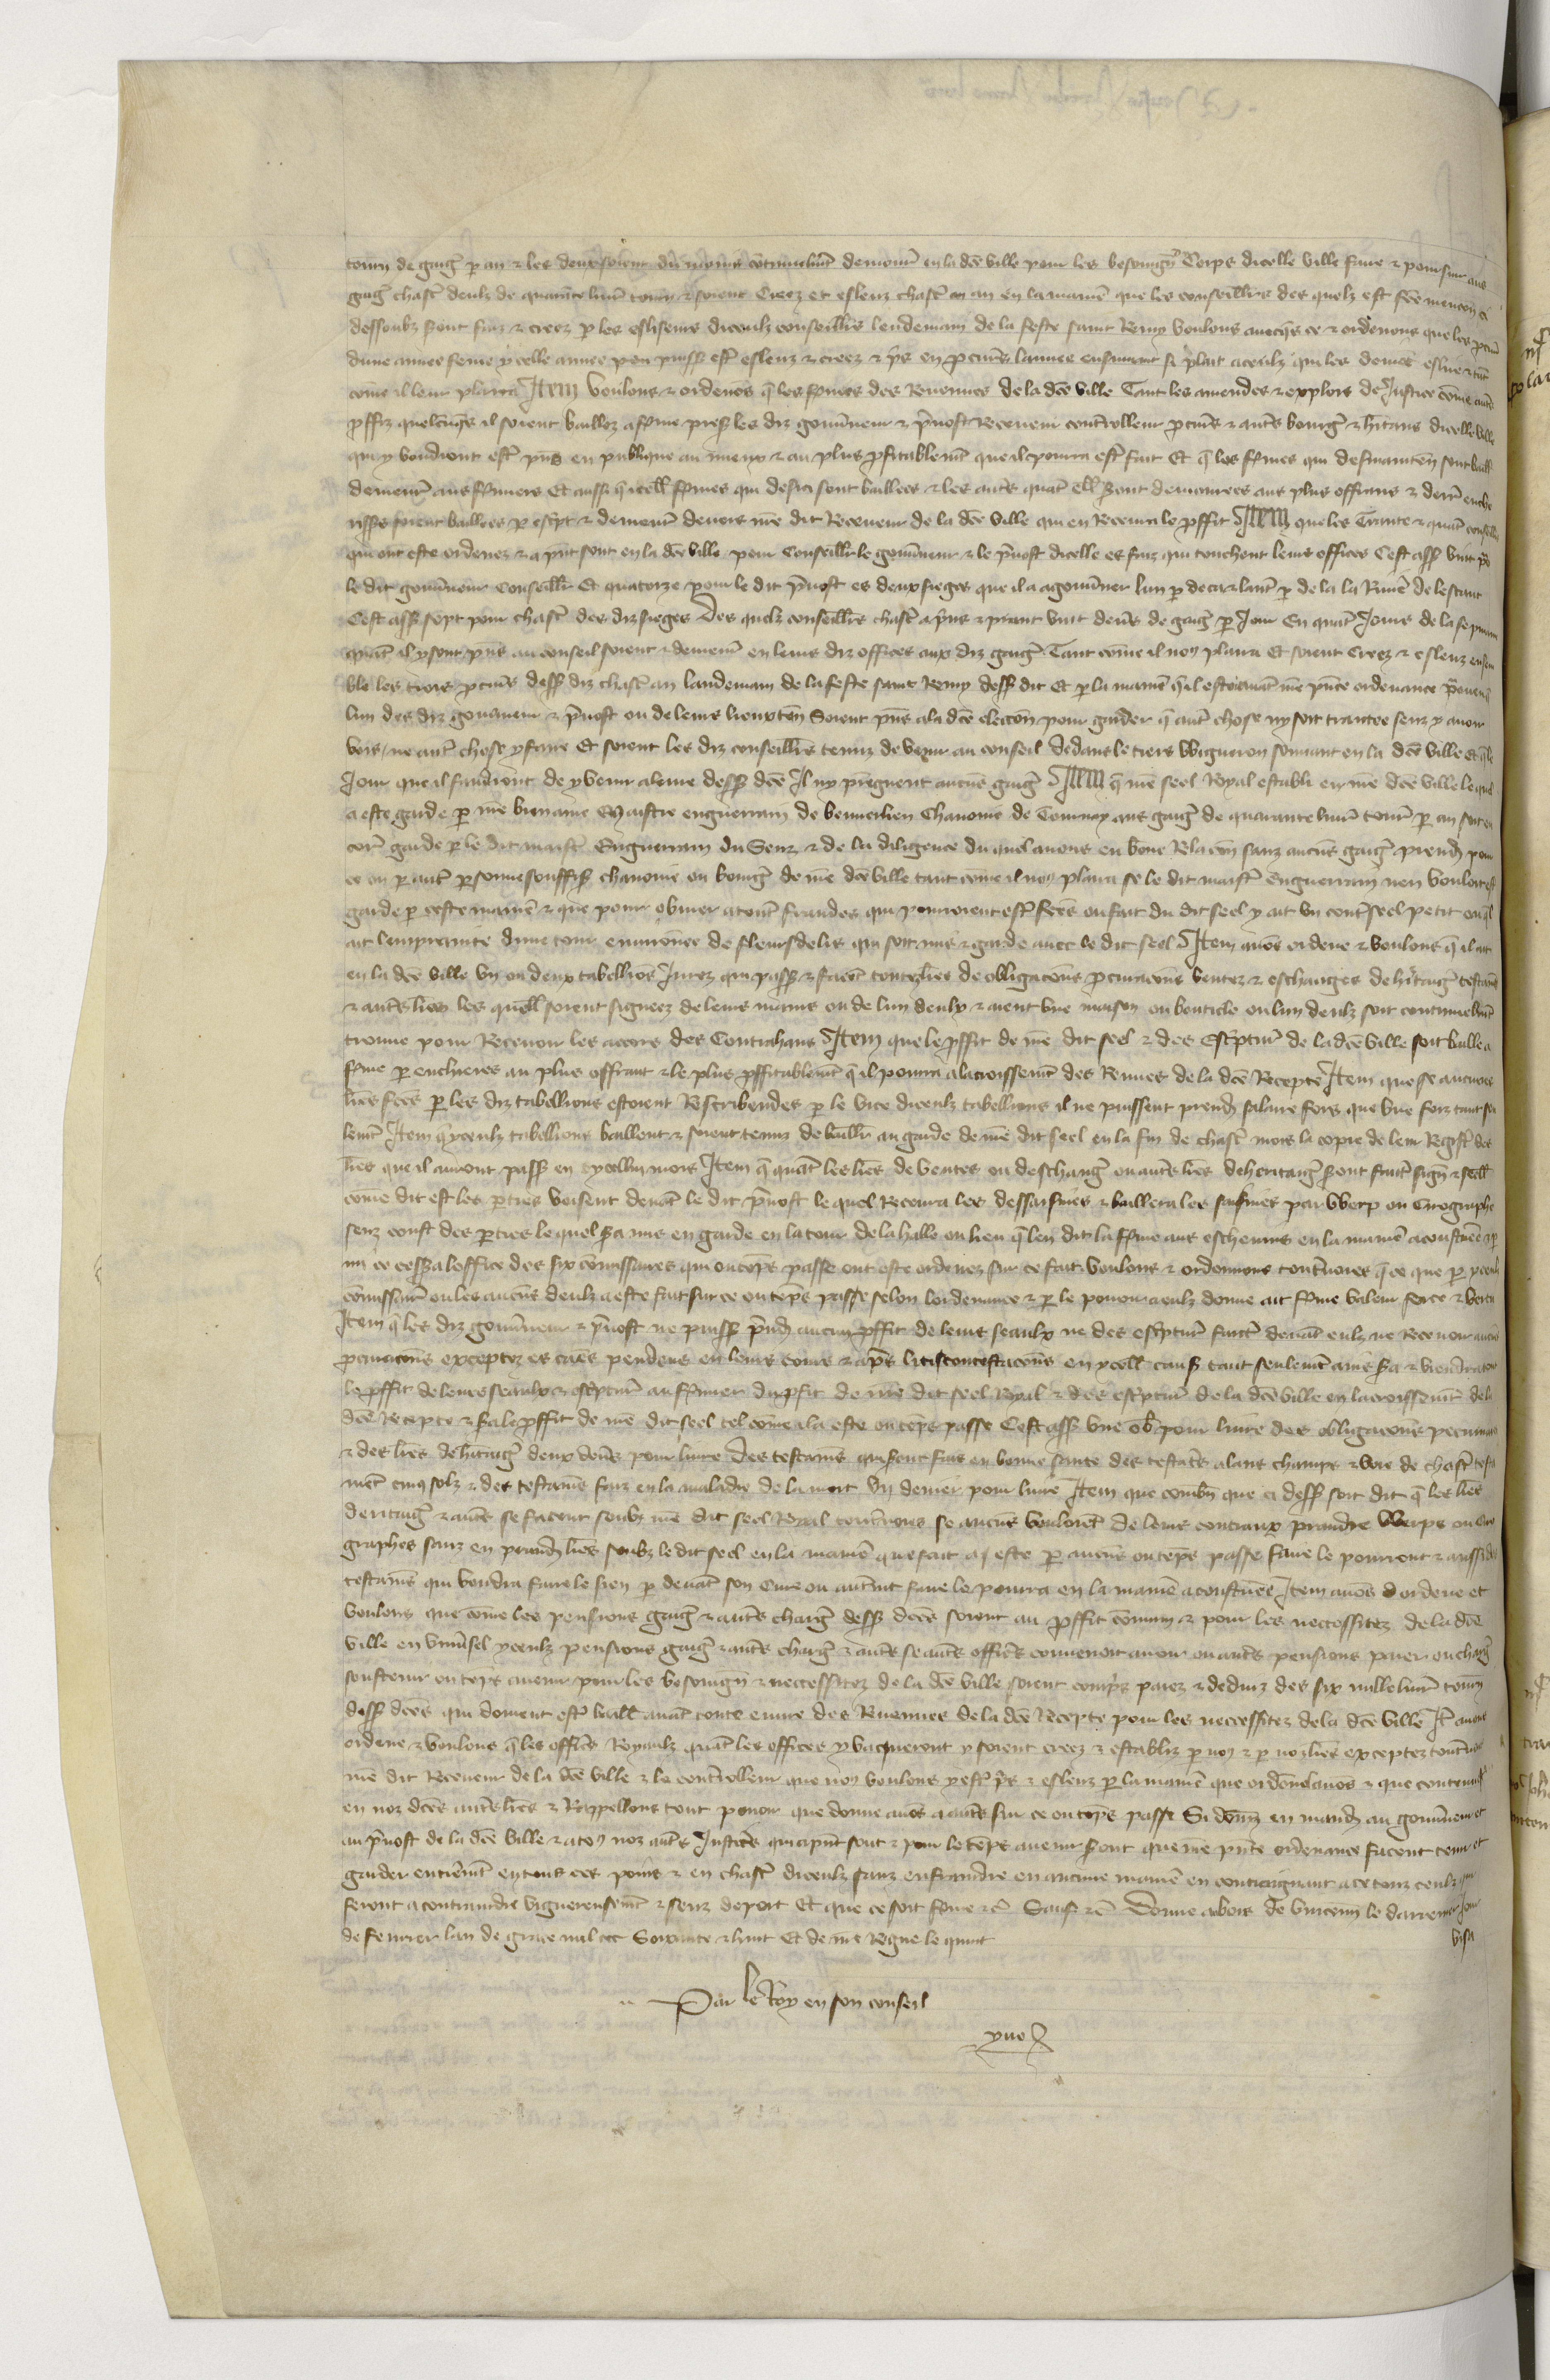 tourn de gaig p an & les deux soient du moins continuelmt demour en la dce ville pour les besoingn Corps dicelle ville faire & poursuir aus
gaig chasc deulz de quarante liur tourn & soient Creez et esleuz chasc an en la manie que les conseilliers des quelz est fce mencon ci
dessoubz sont faiz & creez p les esliseurs diceulz conseilliers lendemain de la feste saint Remy voulons auecqs ce & ordenons que les pcur
dune annee seme ycelle annee pou puiss estre esleuz & creez & prs en pcurs lannee ensuiuant si plait a ceulz qui les deuront eslire & tant
come il leur plaira Item Voulons & ordenos q les fermes des Reuenues de la dce ville Tant les amendes & explois de Justice come autres
proffiz quelcuqs il soient baillez a ferme prese les diz gouuerneur & preuost Receueur controlleur pcurs & autres bourgs & hitans dicelle ville
qui y voudront estre pns en publique au mieux & au plus profitablemt que il pourra estre fait Et q les fermes qui desmainten sont baill
demeurent aus fermiers Et aussi q icell fermes qui desia sont baillees & les autres quant ell seront demourees aus plus offrans & derre enche
risses soient baillees p escript & demeur deuers nre dit Receueur de la dce ville qui en Receura le proffit Item que les Trante & quatre conseillrs
qui ont este ordenez & a pnt sont en la dce ville pour Conseillr le gouuneur & le preuost dicelle es faiz qui touchent leurs offices Cest ass vint po
le dit gouuneur Conseillr Et quatorze pour le dit preuost es deux sieges que il a a gouuner lun p deca & lautre p de la la Riuie de lescaut
Cest ass sept pour chasc des diz sieges Des quelz conseillrs chasc a pris & prant vint dens de gaig p Jour En quatre Jours de la sepmain
quant il y sont pns au conseil soient & demeur en leurs diz offices aux diz gaig Tant come il nous plaira Et soient Creez & esleuz ensem
ble les trois pcurs dess diz chasc an landemain de la feste saint Remy dess dit Et p la manie q il est contenu nre pnte ordenance
lun des diz gouuneur & preuost ou de leurs lieuxten Soient pns a la dce eleccon pour garder q autre chose ny soit traictee senz y auoir
vois ne autre chose y faire Et soient les diz conseillrs tenuz de venir au conseil dedans le tiers Wigneron sonnant en la dce ville Et q le
Jour que il faudront de y venir a leure dess dce Il ny preignent aucuns gaig Item q nre seel Royal establi en nre dce ville le quel
a este garde p nre bien ame Maistre enguerram de Chanoine de Tournay aus gaig de quarante liur tourn p an soit en
core garde p le dit maistre Enguerram du Senz & de la diligence du quel auons eu bone Relacion sanz aucuns gaig prend pour
ce ou p autre personne souffis chanoine ou bourgs de nre dce ville tant come il nous plaira se le dit maistre Enguerram nen vouloit estre
garde p ceste manie & que pour obuier a toute fraudes qui pourroient estre fces ou fait du dit seel y ait vn contreseel petit ou quel
ait lempreinte dune tour enuironee de fleurs de lis qui soit mis & garde auec le dit seel Item auos ordene & voulons q il ait
en la dce ville vn ou deux tabellions Jurez qui passe & facent toutes lres de obligacons pcuracons ventez & eschanges de hitaig testams
& autres lres les quell soient signees de leurs mains ou de lun deulx & aient vne maison ou bouticle ou lun deulz soit continuelmt
trouue pour Receuoir les accors des Contrahans Item que le proffit de nre dit seel & des Escriptur de la dce ville soit baille a
ferme p encheres au plus offrant & le plus proffitablemt q il pourra a lacroissemt des Rentes de la dce Recepte Item que se aucunes
lres fces p les diz tabellions estoient Rescribendes p le vice diceulz tabellions il ne puissent prend salaire fors que vne foiz tant seu
lemt Item q yceulz tabellions baillent & soient tenuz de baillr au garde de nre dit seel en la fin de chasc mois la copie de leur Registre des
lres que il auront pass en ycellui mois Item q quant les lres de ventes ou deschang ou autres lres deheritaig seront faict sign & seell
come dit est les parties voisent deuant le dit preuost le quel Receura les dessaisines & baillera les saisines par Werp ou Cirographe
senz coust des parties le quel sera mis en garde en la tour de la halle ou lieu q len dit la ferme aus escheuins en la manie acoustumee & p
mi ce cess a loffice des six comissaires qui ou teps passe ont este ordenez sur ce fait voulons & ordennons toutuoies q ce que p yceulz
comissair ou les aucuns deulz a este fait sur ce ou teps passe selon lordenance & p le pouoir a eulz donne ait ferme valeur force & vertu
Item q les diz gouuneur & preuost ne puiss prendre aucun proffit de leurs seaulx ne des escriptur faict deuant eulz ne Receuoir aucuns
pcuracions exceptez es caes pendens en leurs cours & aps litiscontestacions en ycell caus tant seulemt ains sera & viendra tout
le proffit de leurs seaulx & escriptur au fermier du proffit de nre dit seel Royal & des escriptur de la dce ville en lacroissemt de la
dce Recepte & sera le proffit de nre dit seel tel come il a este ou teps passe Cest ass vne ob pour liure des obligacons pecuniaires
& des lres deheritaig deux dens pour liure Des testams qui seront fais en bonne sante des testatrs alans champs & voie de chasc testa
ment cinq solz & des testams faiz en la maladie de la mort vn denier pour liure Item que combn que ci dess soit dit q les lres
deritaig & autres se facent soubz nre dit seel Royal toutuoies se aucuns vouloient de leurs contraux prandre Werps ou Ciro
graphes sanz en prendre lres soubz le dit seel en la manie que fait a este p aucuns ou teps passe faire le pourront & aussi des
testams qui voudra faire le sien p deuant son Cure ou autremt faire le pourra en la manie acoustumee Item auos ordene et
voulons que come les pensions gaig & autres charg dess dces soient au proffit comun & pour les neccessitez de la dce
ville en vniuersel yceulz pensions gaig & autres charg & autres se autres offices conuenoit auoir ou autres pensions paier ou charg
soustenir ou teps auenir pour les besoingn & neccessitez de la dce ville soient compris paiez & deduiz des six mille liur tourn
dess dces qui doiuent estre baill auant toute euure des Reuenues de la dce Recepte pour les neccessitez de la dce ville It auons
ordene & voulons q les offices Royaulx quant les offices y vacqueront y soient creez & establiz p nous & p noz lres exceptez toutuoies
nre dit Receueur de la dce ville & le controlleur que nous voulons y estre prs & esleuz p la manie que ordene lauos & que contenu est
en noz dces autres lres & Rappellons tout pouoir que donne auos a autres sur ce ou teps passe Si donns en mand au gouuneur et
au preuost de la dce ville & a tous noz autres Justiciers qui a pnt sont & pour le teps auenir seront que nre pnte ordenance facent tenir et
garder entieremt en tous ces poins & en chasc diceulz sanz enfraindre en aucune manie en contraignant a ce touz ceulz qui
feront a contraindre viguereusemt & senz deport Et que ce soit ferme &c Sauf &c Donne au bois de Vincenn le darrenier Jour
de feurier lan de grace mil ccc Soixante & huit Et de nre Regne le quint
visa
Par le Roy en son conseil
yuo